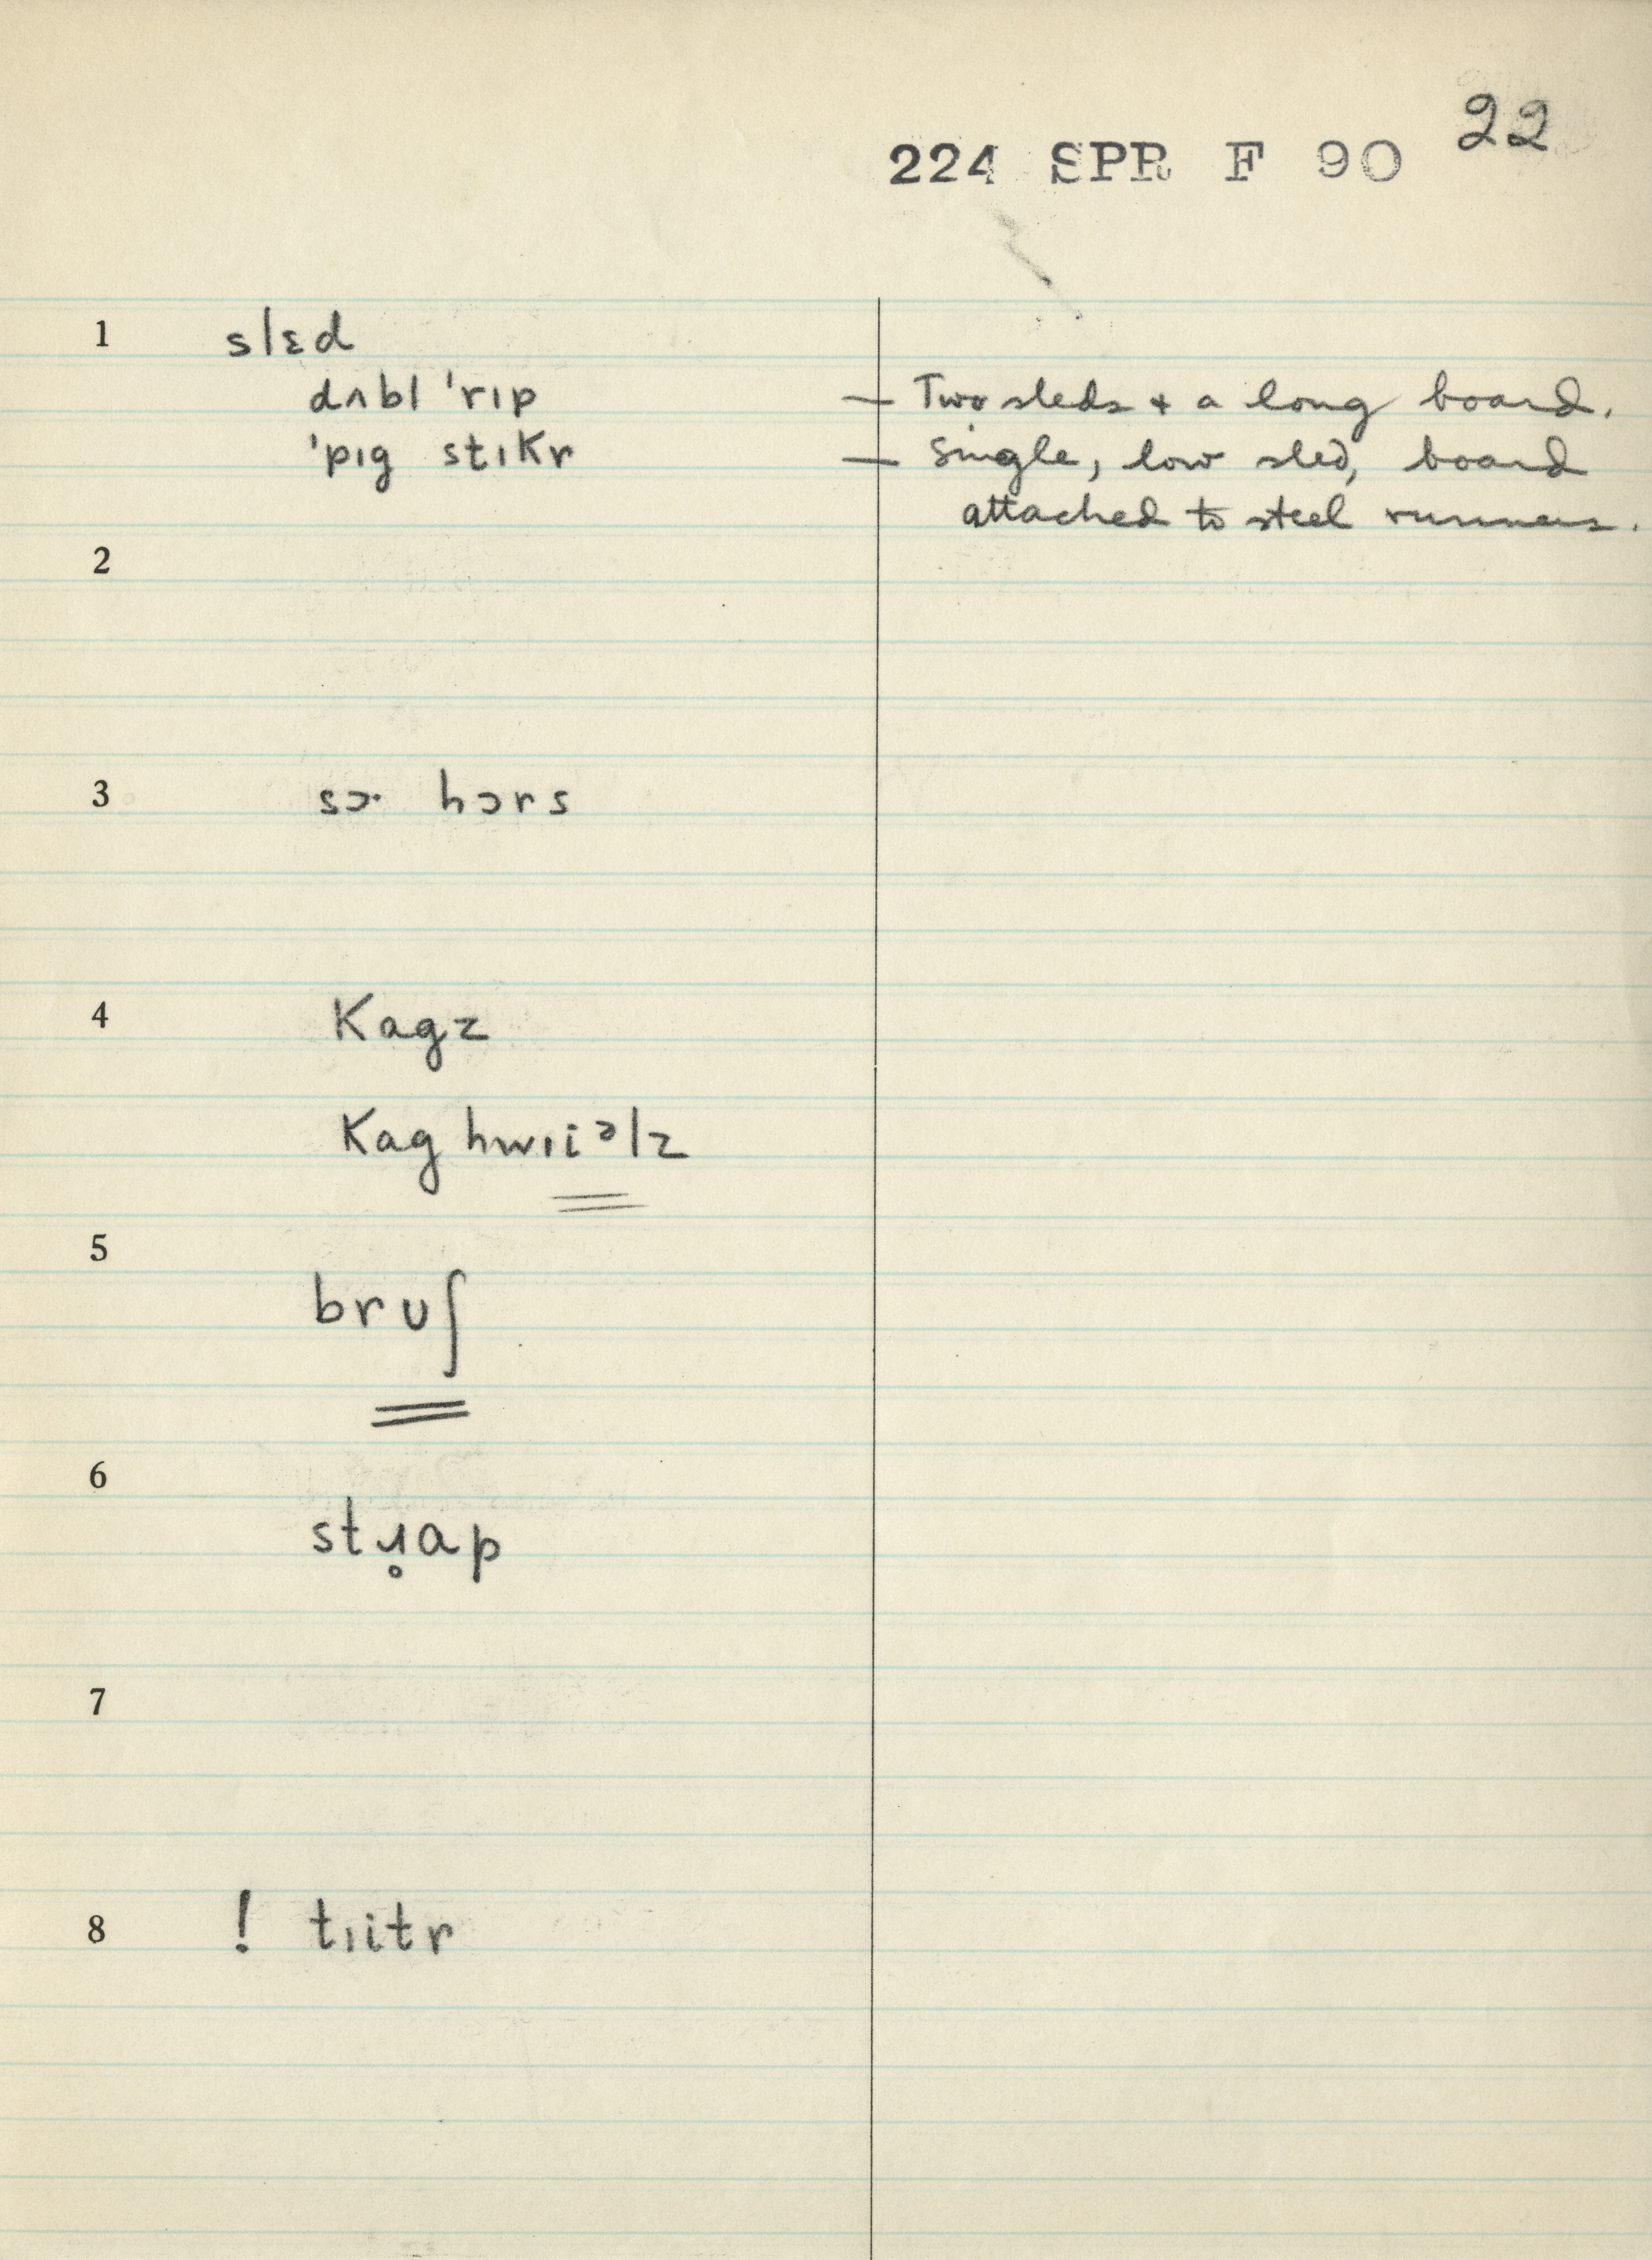 22
224 SPR F 90
1 slɛd
dʌbl 'rɪp — Two sleds + a long board.
'pɪg stɪkr — Single, low sled, board
attached to steel runners.
2
3 sɔ· hɔrs
4 kagz
kag hwɪiᵊlz
5 brʊʃ
6 stɹ̥ap
7
8 ! tɪitr